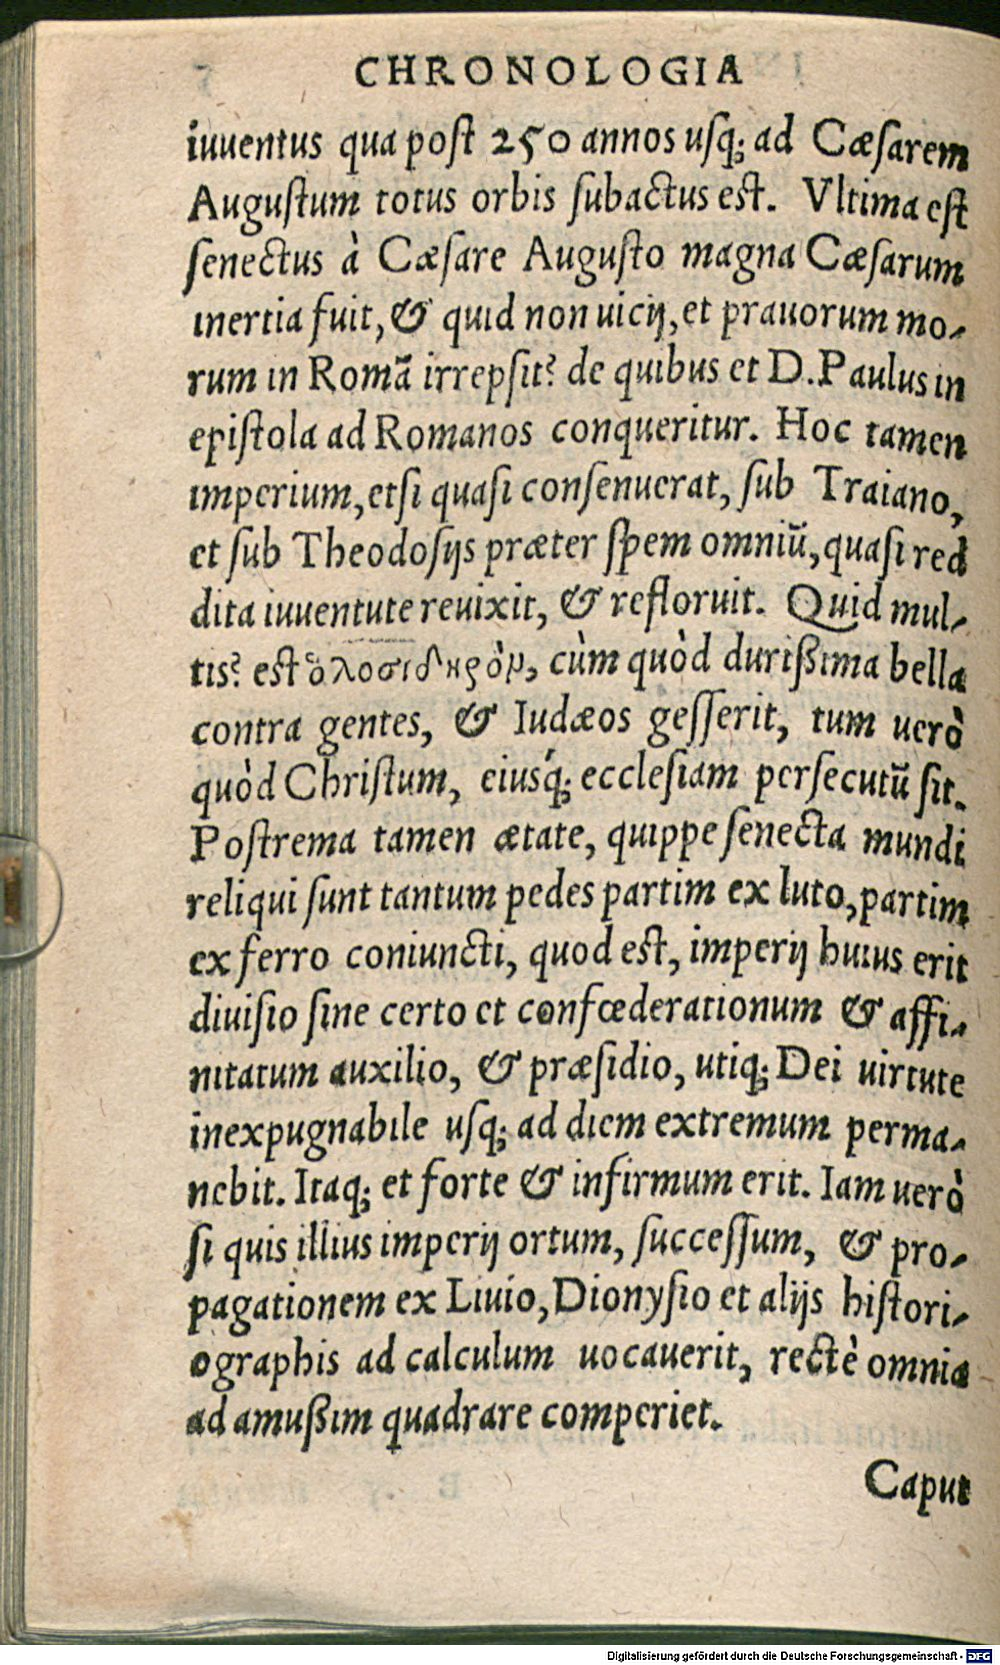 CHRONOLOGIA
iuuentus qua post 250 annos usq; ad Cæsarem
Augustum totus orbis subactus est. Vltima est
senectus à Cæsare Augusto magna Cæsarum
inertia fuit, & quid non uicij, et prauorum mo-
rum in Romã irrepsit? de quibus et D. Paulus in
epistola ad Romanos conqueritur. Hoc tamen
imperium, etsi quasi consenuerat, sub Traiano,
et sub Theodosijs præter spem omniũ, quasi red
dita iuuentute reuixit, & refloruit. Quid mul-
tis? est ὁλοσιδηρὸν, cùm quòd durißima bella
contra gentes, & Iudæos gesserit, tum uerò
quòd Christum, eiusq́; ecclesiam persecutũ sit.
Postrema tamen ætate, quippe senecta mundi
reliqui sunt tantum pedes partim ex luto, partim
ex ferro coniuncti, quod est, imperij huius erit
diuisio sine certo et confœderationum & affi-
nitatum auxilio, & præsidio, utiq; Dei uirtute
inexpugnabile usq; ad diem extremum perma-
nebit. Itaq; et forte & infirmum erit. Iam uerò
si quis illius imperij ortum, successum, & pro-
pagationem ex Liuio, Dionysio et alijs histori-
ographis ad calculum uocauerit, rectè omnia
ad amußim quadrare comperiet.
Caput
Digitalisierung gefördert durch die Deutsche Forschungsgemeinschaft - DFG